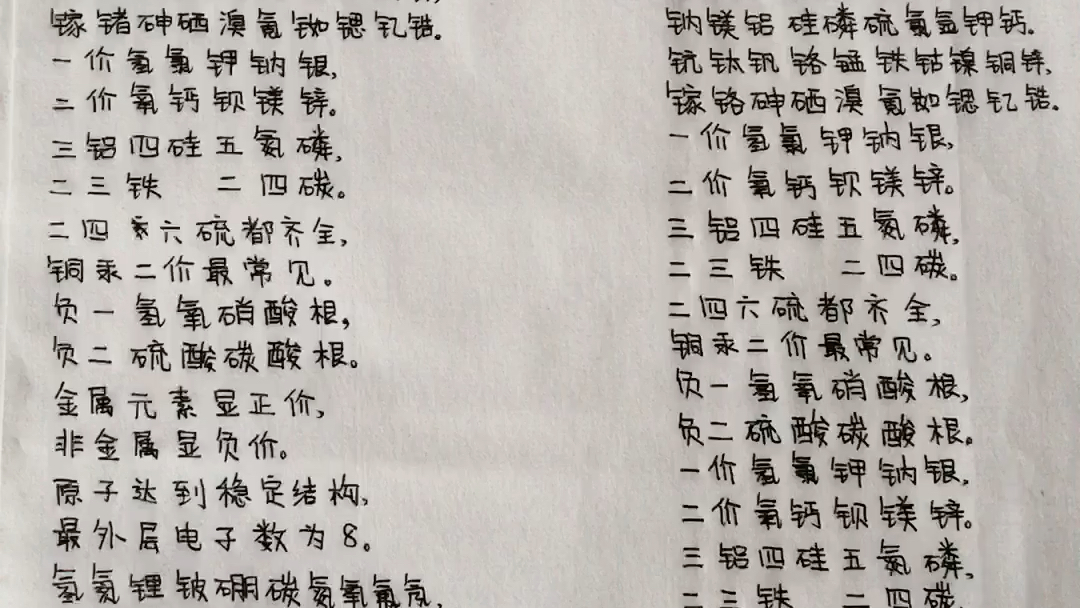 镓锗砷硒溴氪铷锶钇锆。
一价氢氯钾钠银,
二价氧钙钡镁锌。
三铝四硅五氮磷,
二三铁 二四碳。
二四 六硫都齐全,
铜汞二价最常见。
负一氢氧硝酸根,
负二硫酸碳酸根。
金属元素显正价,
非金属显负价。
原子达到稳定结构,
最外层电子数为8。
氢氦锂铍硼碳氮氧氟氖,
钠镁铝硅磷硫氯氩钾钙。
钪钛钒铬锰铁钴镍铜锌,
镓铬砷硒溴氪铷锶钇锆。
一价氢氯钾钠银,
二价氧钙钡镁锌。
三铝四硅五氮磷,
二三铁 二四碳。
二四六硫都齐全,
铜汞二价最常见。
负一氢氧硝酸根,
负二硫酸碳酸根。
一价氢氯钾钠银,
二价氧钙钡镁锌。
三铝四硅五氮磷,
二三铁 二四碳